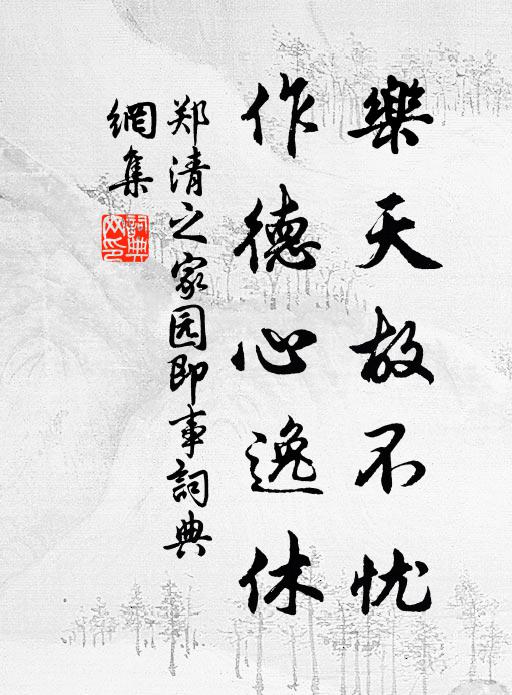 樂天故不忧
作德心逸休
郑清之家园即事詞典
網集
詞典
网印